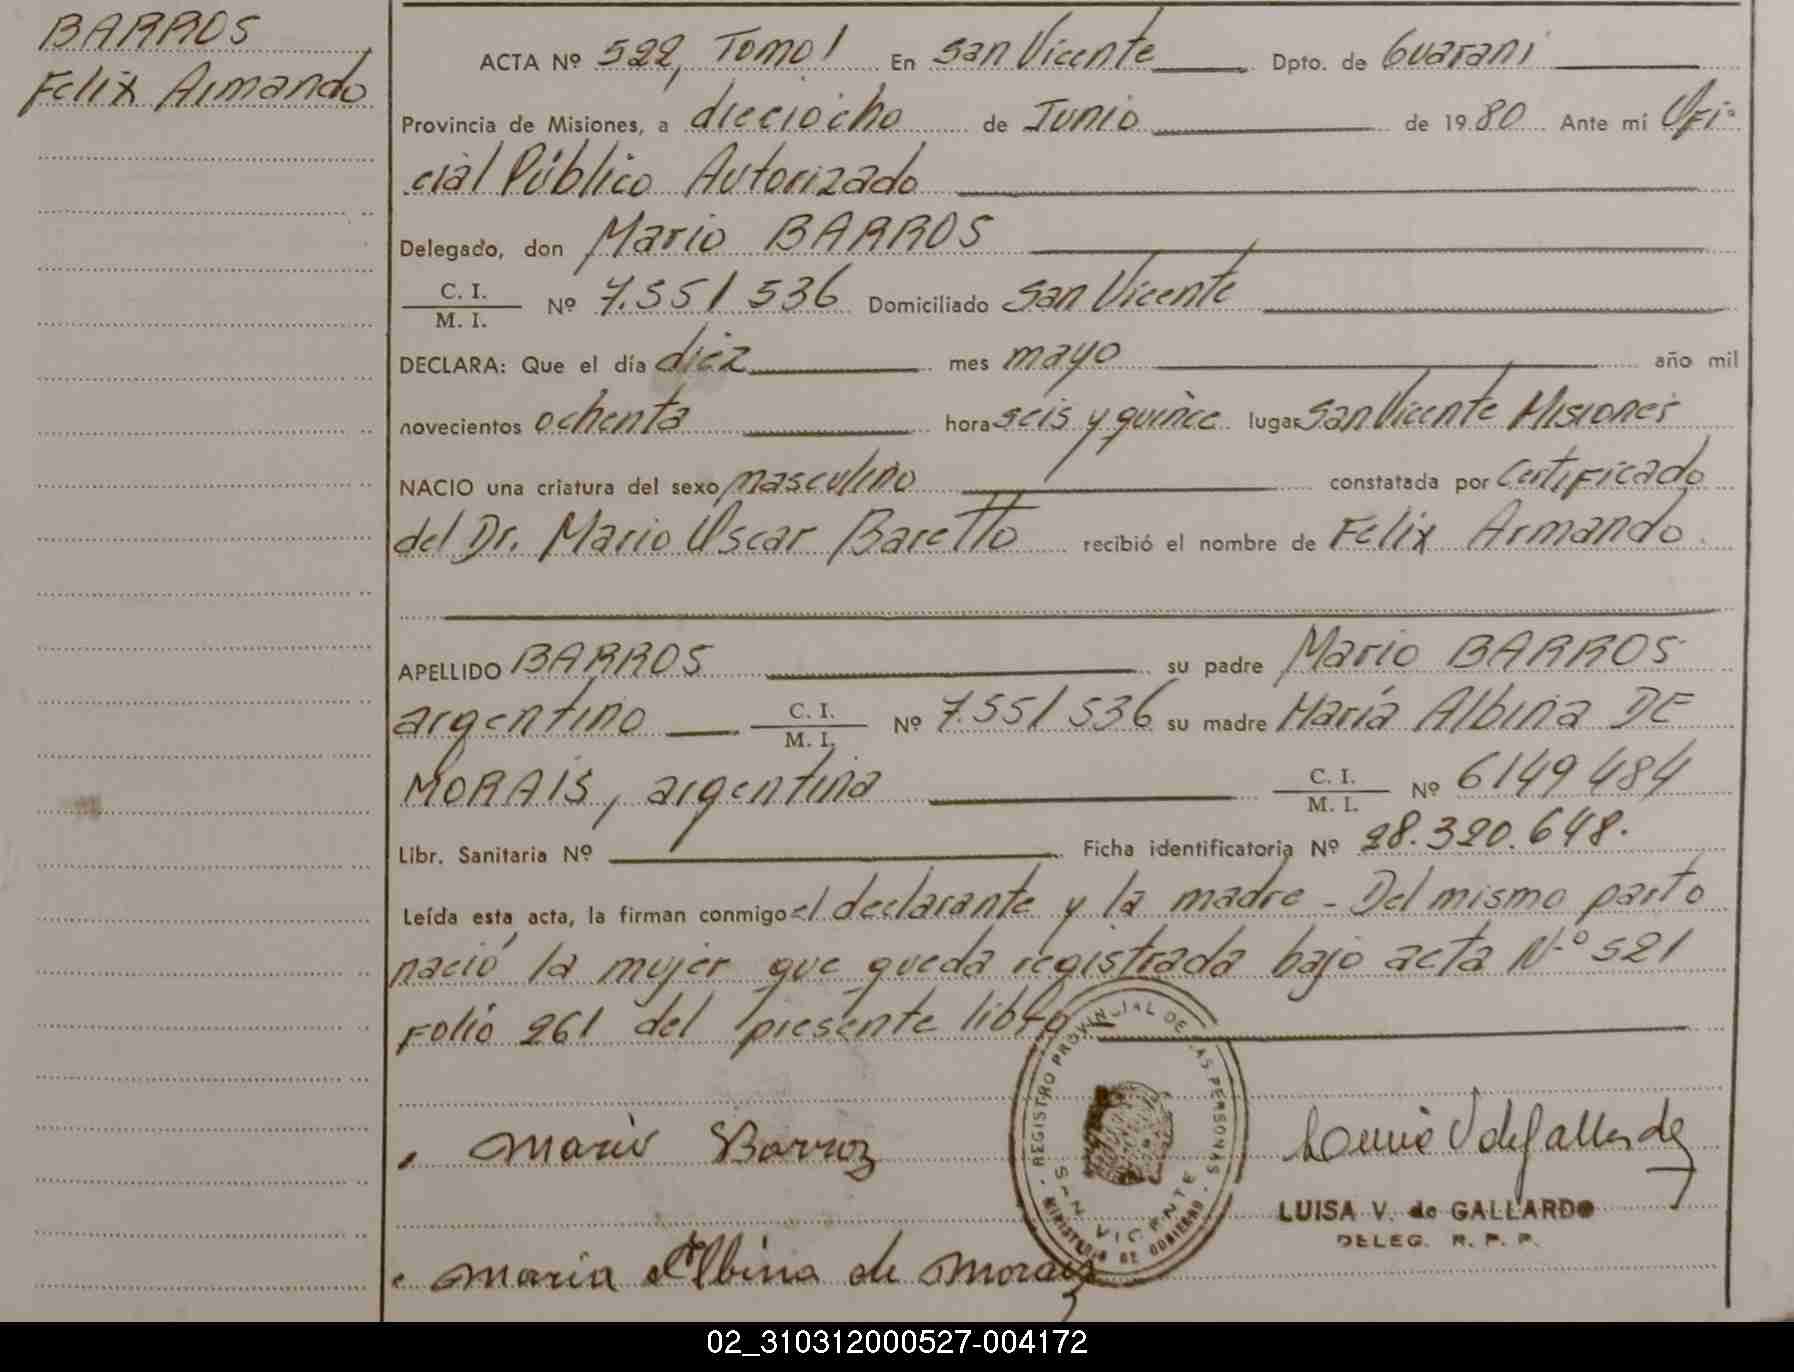 BARROS
Felix Armando
ACTA Nº 522, Tomo I En San Vicente Dpto. de Guaraní
Provincia de Misiones, a dieciocho de Junio de 1980 Ante mí Ofi-
cial Público Autorizado
Delegado, don Mario BARROS
C. I.
M. I. Nº 7.551536 Domiciliado San Vicente
DECLARA: Que el día diez mes mayo año mil
novecientos ochenta hora seis y quince lugar San Vicente Misiones
NACIO una criatura del sexo masculino constatada por Certificado
del Dr. Mario Oscar Baretto recibió el nombre de Felix Armando.
APELLIDO BARROS su padre Mario BARROS
argentino C. I.
M. I. Nº 7.551536 su madre María Albina DE
MORAIS, argentina C. I.
M. I. Nº 6149484
Libr. Sanitaria Nº Ficha identificatoria Nº 28.320.648.
Leída esta acta, la firman conmigo el declarante y la madre - Del mismo parto
nació la mujer que queda registrada bajo acta Nº 521
Folio 261 del presente libro
REGISTRO PROVINCIAL DE LAS PERSONAS
SAN VICENTE
MINISTERIO DE GOBIERNO
Mario Barroz
Luisa V de Gallardo
LUISA V. de GALLARDO
DELEG. R. P. P.
Maria Albina de Morais
02_310312000527-004172